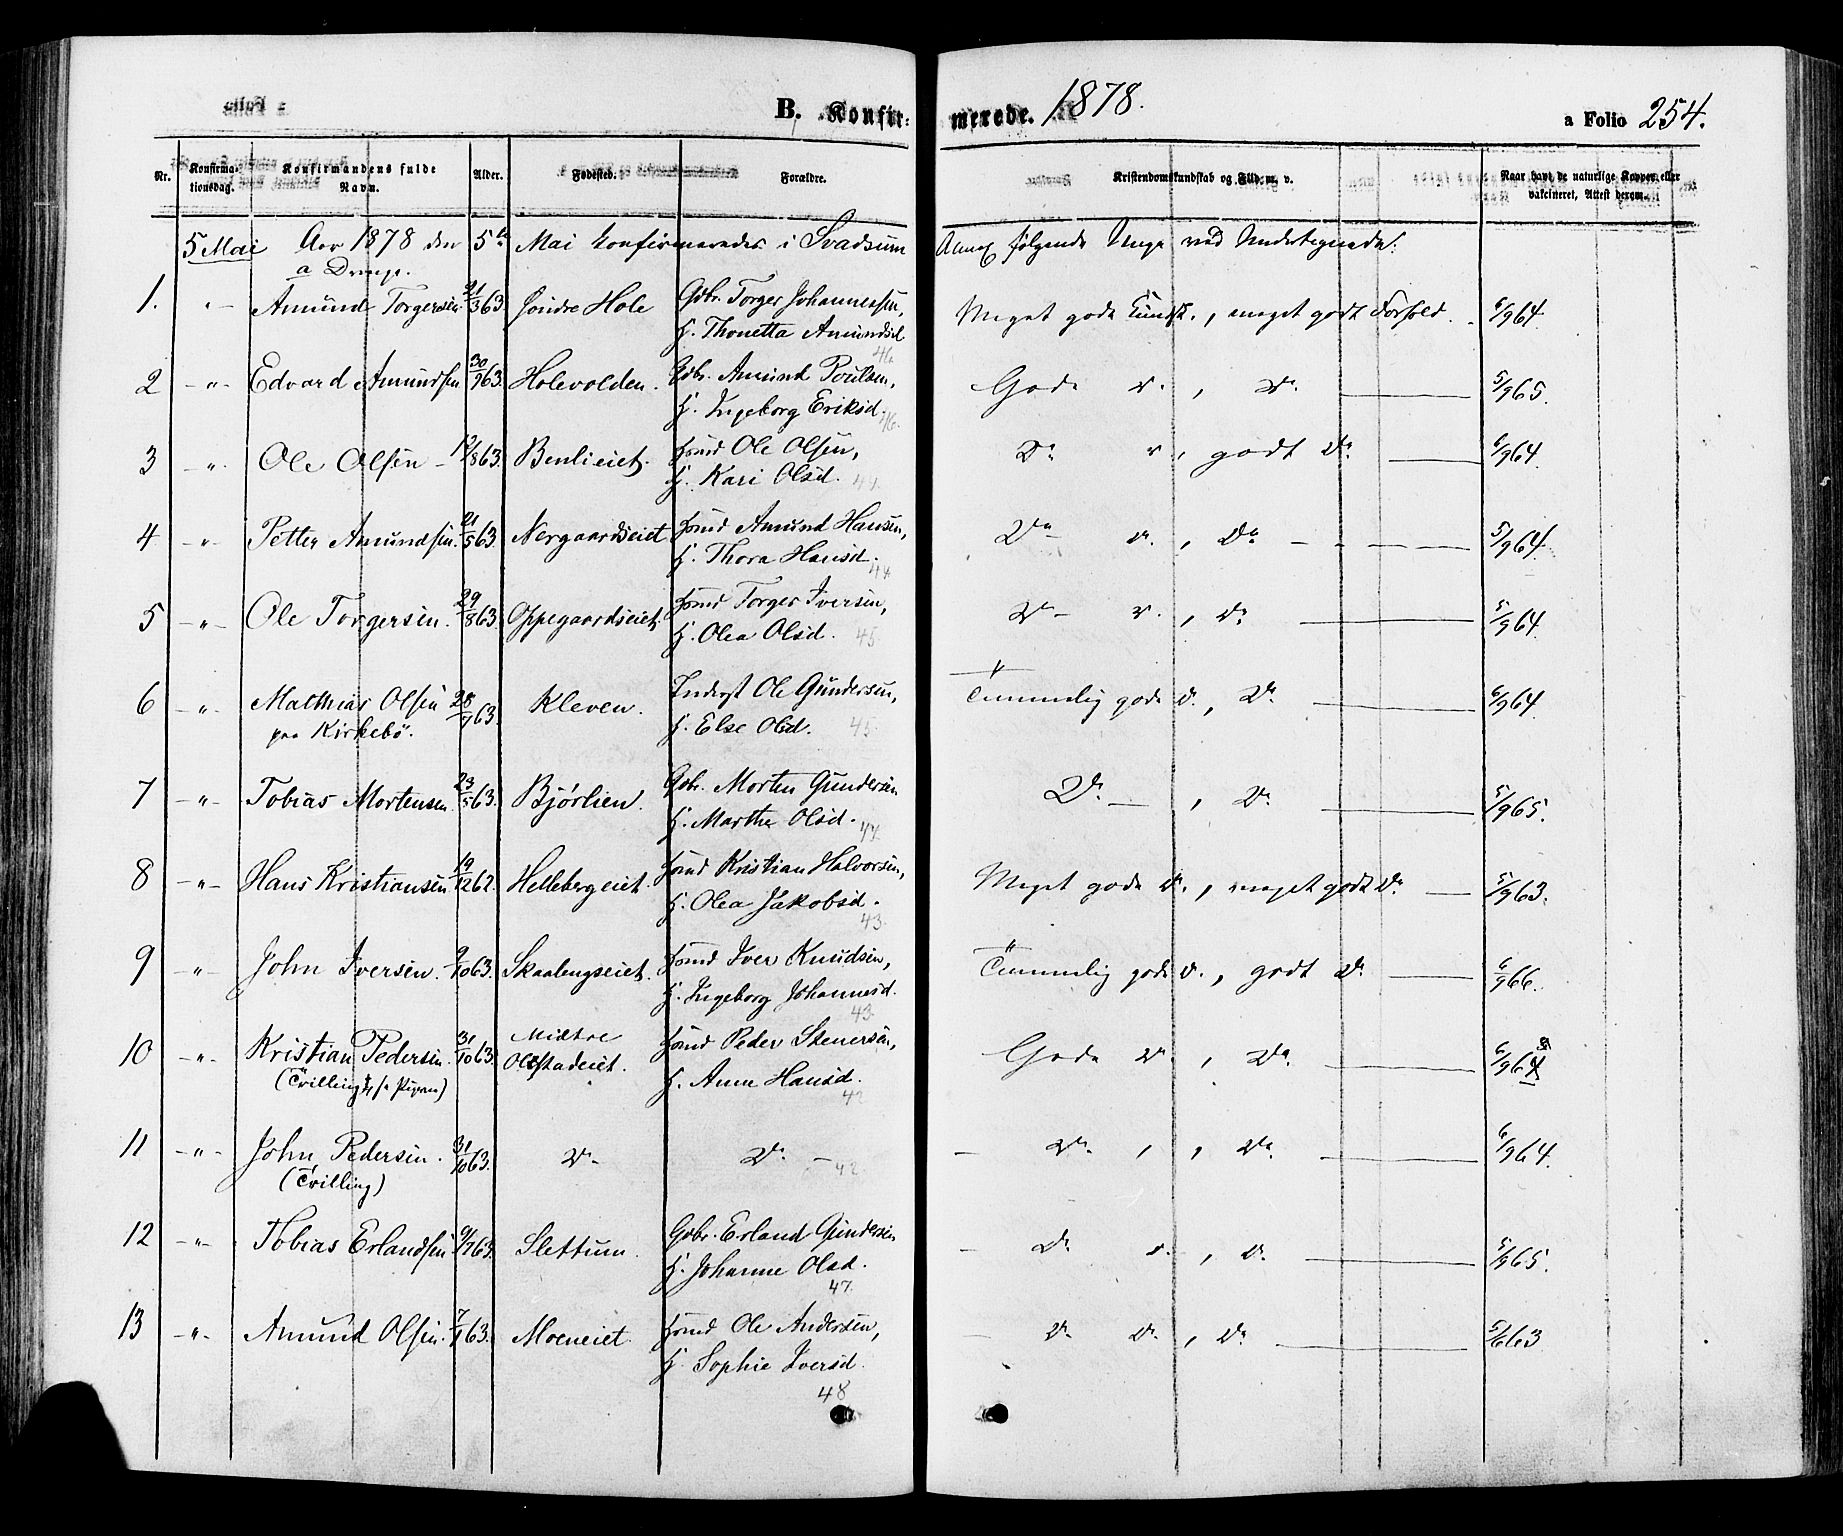 B. Konfirmerede. 1878.
a Folio 254.
Nr. Konfirmationsdag. Konfirmandens fulde Navn. Alder. Fødested. Forældre. Kristendomskundskab og Flid m. v. Naar havt de naturlige Kopper eller vakcineret, Attest derom.
5 Mai Aar 1878 den 5te Mai konfirmeredes i Svadsum Annex følgende Unge ved Undertegnede:
a Drenge.
1. -"- Amund Torgersen 21/3 63. Søndre Hole Gdbr. Torger Johannessen, Meget gode Kundsk., meget godt Forhold. 6/9 64.
H. Thonetta Amundsd.
46.
2 -"- Edvard Amundsen 30/9 63. Holevolden. Gdbr. Amund Poulsen, Gode D., Do. 5/9 65.
H. Ingeborg Eriksd. 46.
3 -"- Ole Olsen - 12/8 63. Benlieiet. Hmd Ole Olsen, Do D, godt Do. 6/9 64.
H. Kari Olsd. 44.
4 -"- Petter Amundsen. 21/5 63. Nergaardseiet Hmd Amund Hansen, Do - D., Do - 5/9 64.
H. Thora Hansd. 44.
5 -"- Ole Torgersen. 29/8 63. Oppegaardseiet Hmd Torger Iversen, Do - D., Do 5/9 64.
H. Olea Olsd. 45.
6 -"- Mathias Olsen 28/9 63. Kleven. Inderst Ole Gundersen, Temmelig gode D., Do 6/9 64.
paa Kirkebö. H. Else Olsd. 45.
7 -"- Tobias Mortensen. 23/5 63. Bjørlien. Gdbr. Morten Gundersen Do. -, Do. 5/9 65.
H. Marthe Olsd. 47.
8 -"- Hans Kristiansen 19/12 62. Hellebergeiet. Hmd Kristian Halvorsen, Meget gode D., meget godt Do. 5/9 63.
H. Olea Jakobsd. 43.
9 -"- John Iversen. 9/10 63. Skaalengseiet. Hmd Iver Knudsen, Temmelig gode D., godt Do 6/9 66.
H. Ingeborg Johannesd. 43.
10 -"- Kristian Pedersen 31/10 63. Midtre Olstadeiet. Hmd Peder Stenersen, Gode Do, Do 6/9 64
H. Anne Hansd. 42
11 -"- John Pedersen. 31/10 63. Do - Do - 42 - Do, , Do. 6/9 64.
(Tvilling)
12 -"- Tobias Erlandsen 9/7 63. Slettum. Gdbr. Erland Gundersen - Do D., D. 5/9 65.
H. Johanne Olsd. 47.
13 -"- Amund Olsen. 7/1 63. Moeneiet. Hmd Ole Andersen, - D. D., Do 5/6 63
H. Sophie Iversd.
48